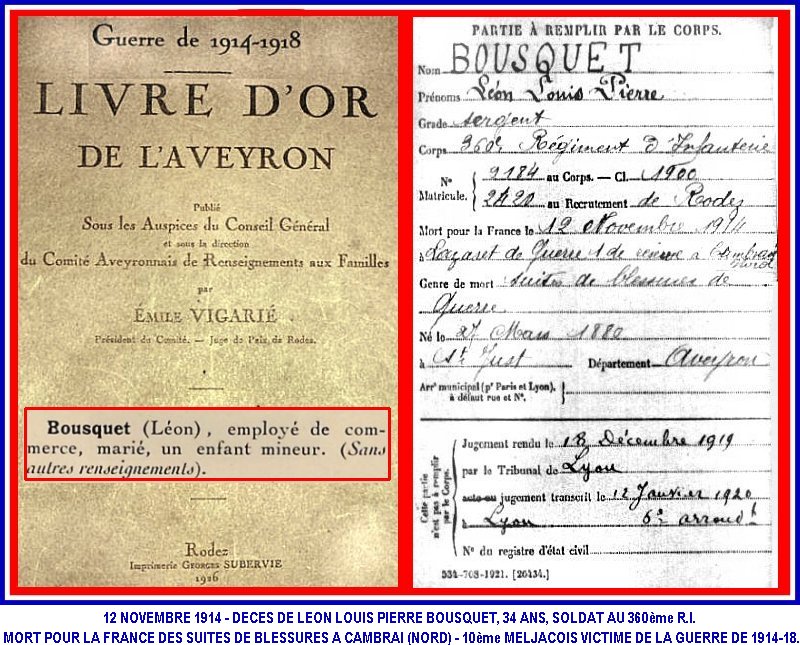 Guerre de 1914-1918
LIVRE D'OR
DE L'AVEYRON
Publié
Sous les Auspices du Conseil Général
et sous la direction
du Comité Aveyronnais de Renseignements aux Familles
par
ÉMILE VIGARIÉ
Président du Comité. — Juge de Paix de Rodez.
Bousquet (Léon), employé de com-
merce, marié, un enfant mineur. (Sans
autres renseignements).
Rodez
Imprimerie GEORGES SUBERVIE
1926
PARTIE À REMPLIR PAR LE CORPS.
Nom BOUSQUET
Prénoms Léon Louis Pierre
Grade sergent
Corps 360e Régiment d'Infanterie
N° Matricule. { 2184 au Corps. — Cl. 1900
2420 au Recrutement de Rodez
Mort pour la France le 12 Novembre 1914
à Lazaret de Guerre 1 de réserve à Cambrai Nord
Genre de mort suites de blessures de
Guerre
Né le 27 Mars 1880
à St Just Département Aveyron
Arrt municipal (pr Paris et Lyon),
à défaut rue et N°.
Cette partie n'est pas à remplir par le Corps.
Jugement rendu le 18 Décembre 1919
par le Tribunal de Lyon
acte ou jugement transcrit le 12 Janvier 1920
à Lyon 6e arrondt
N° du registre d'état civil
534-708-1921. [26434.]
12 NOVEMBRE 1914 - DECES DE LEON LOUIS PIERRE BOUSQUET, 34 ANS, SOLDAT AU 360ème R.I.
MORT POUR LA FRANCE DES SUITES DE BLESSURES A CAMBRAI (NORD) - 10ème MELJACOIS VICTIME DE LA GUERRE DE 1914-18.